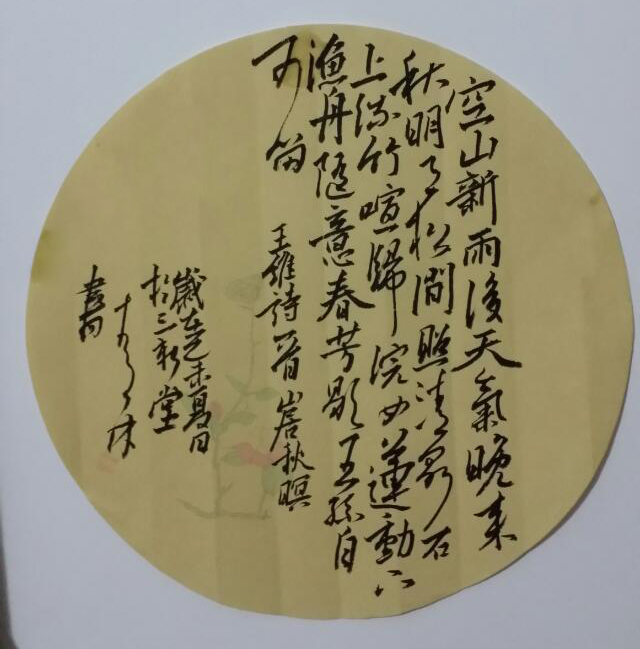 空山新雨後天氣晚来
秋明月松間照清泉石
上流竹喧歸浣女蓮動下
漁舟随意春芳歇王孫自
可留
王維詩一首山居秋暝
歲在乙未夏日
於三新堂
書